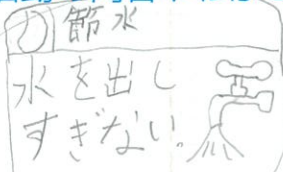 節水
水を出し
すぎない。